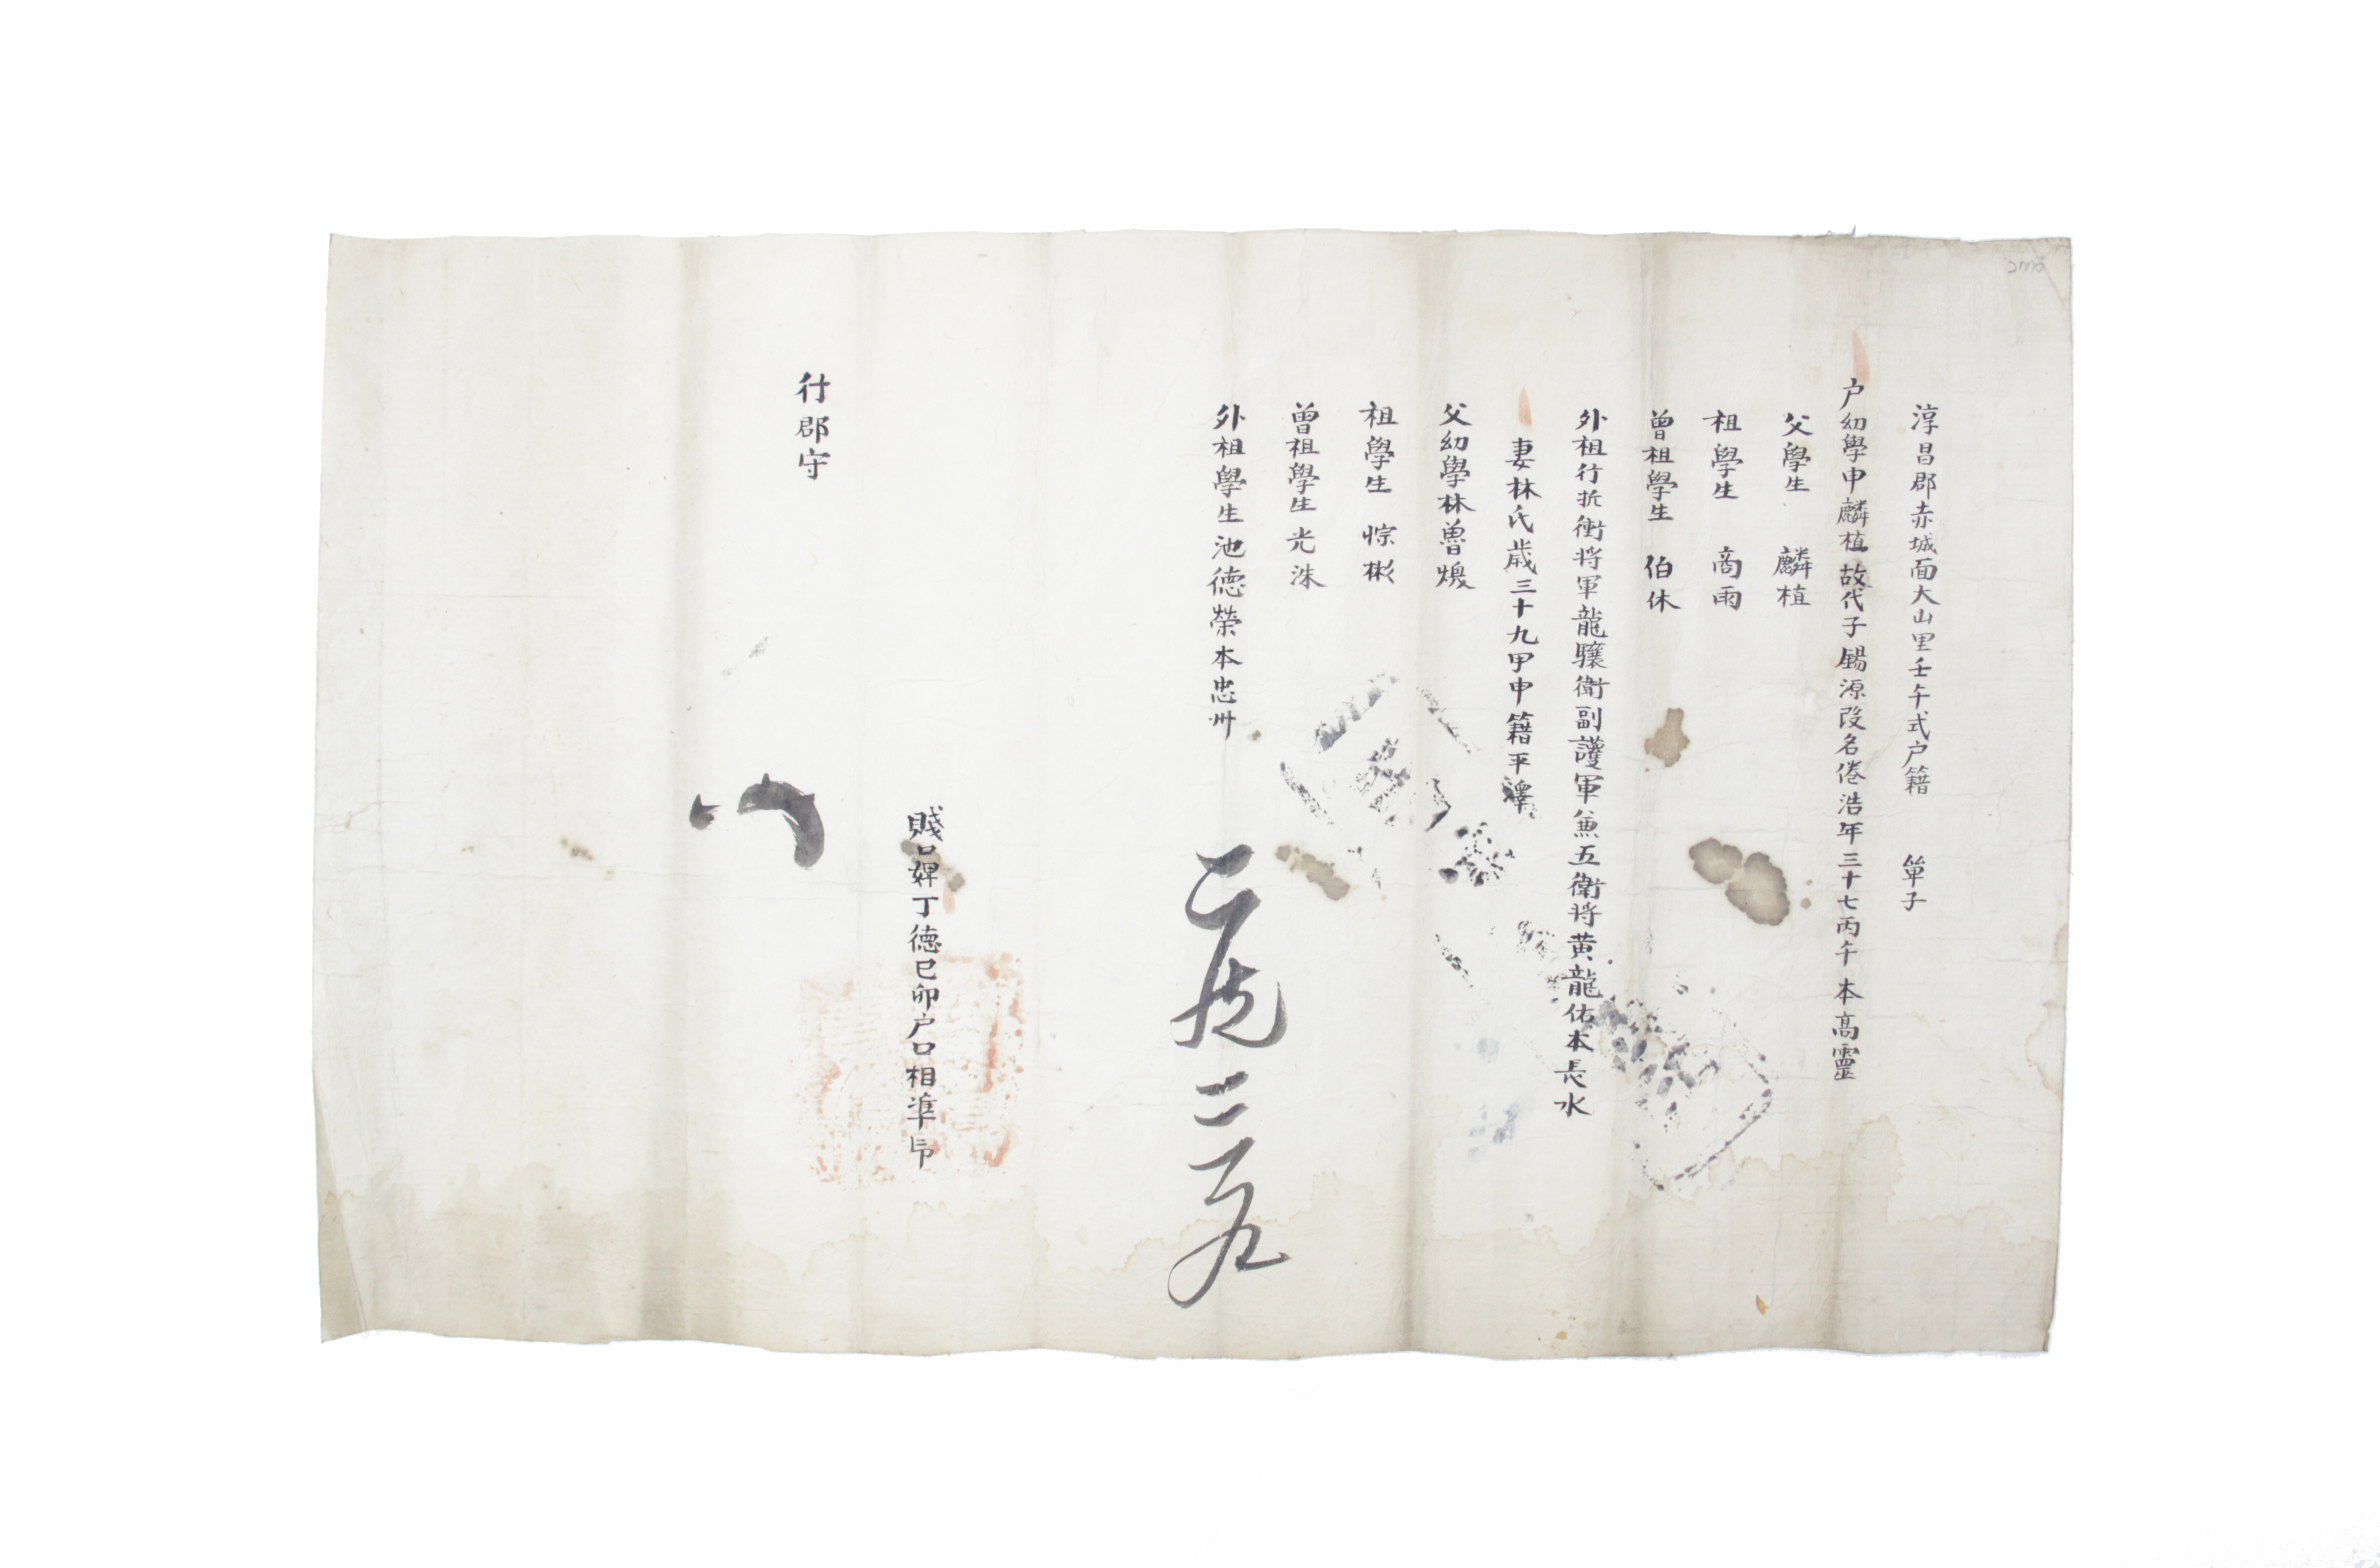 淳昌郡赤城面大山里壬午式户籍 單子
户幼學申麟植故代子錫源改名倦浩年三十七丙午本高靈
父學生 麟植
祖學生 商雨
曾祖學生 伯休
外祖行折衝将軍龍驤衛副護軍兼五衛将黃龍佑本長水
妻林氏歲三十九甲申籍平澤
父幼學林魯煥
祖學生 悰彬
曾祖學生光洙
外祖學生池德榮本忠州
賤口婢丁德己卯户口相準印
行郡守